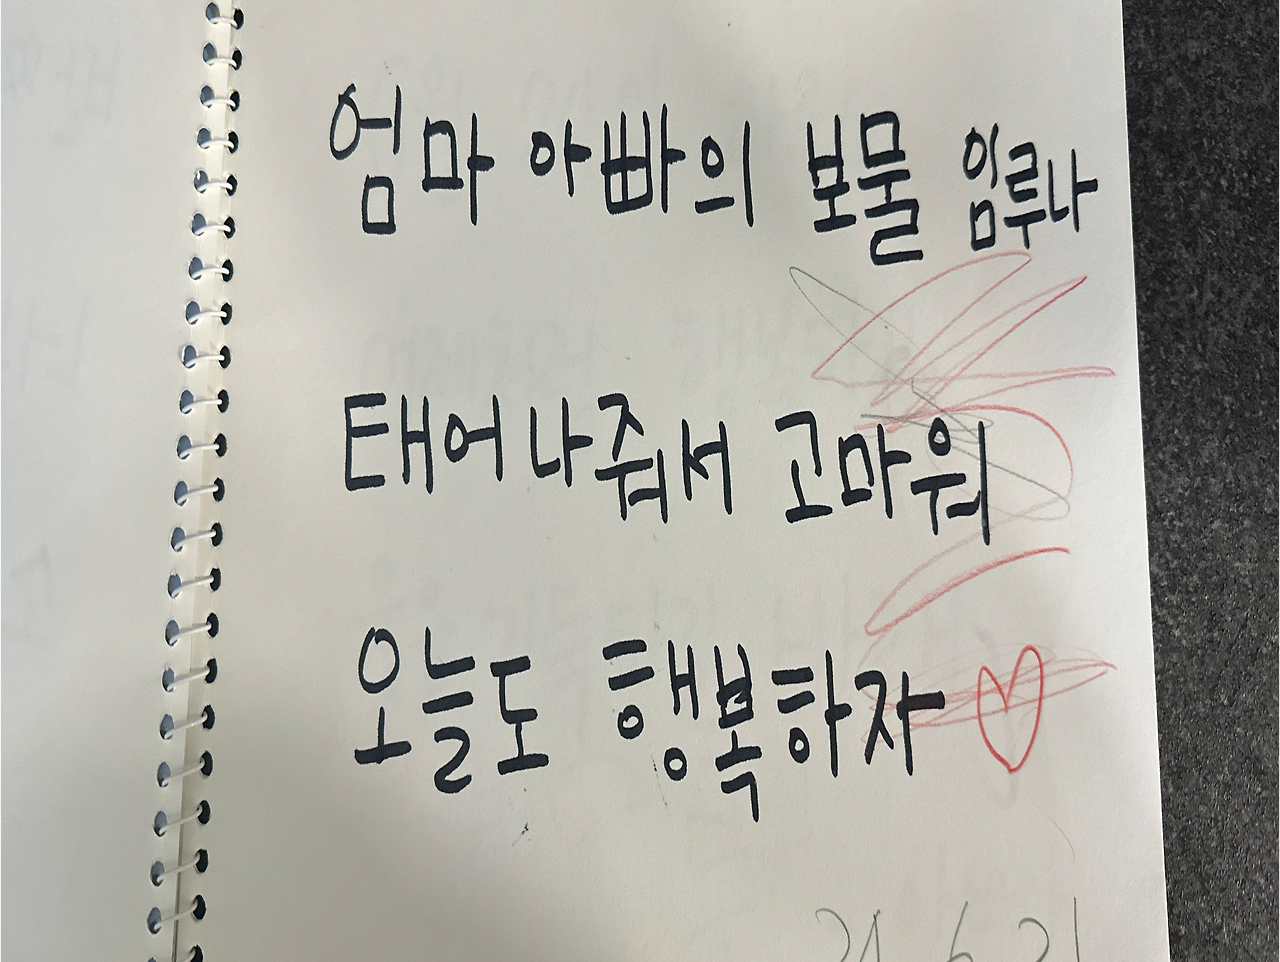 엄마 아빠의 보물 임루나
태어나줘서 고마워
오늘도 행복하자
24. 6. 21